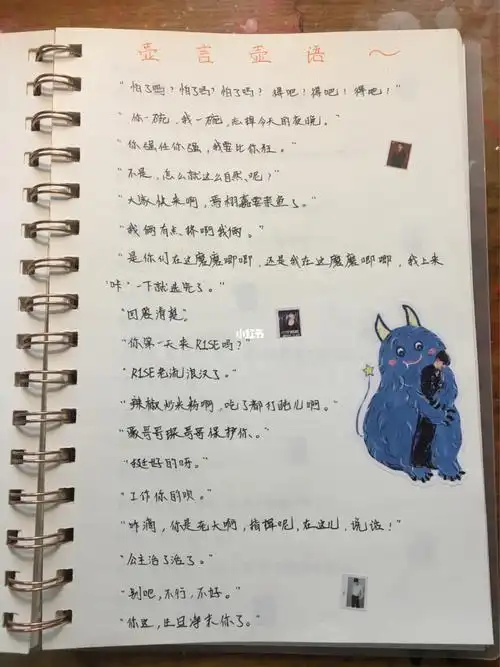 壶言壶语～
“怕了吗？怕了吗？怕了吗？得吧！得吧！得吧！”
“你一碗，我一碗，忘掉今天的夜晚。”
“你强任你强，我要比你狂。”
“不是，怎么就这么自然呢？”
“大家快来啊，
“我俩有点挤啊我俩。”
“是你们在这磨磨唧唧，还是我在这磨磨唧唧，我上来
“咔”一下就选完了。”
“因为清楚。”
“你第一天来R1SE吗？”
“R1SE老流浪汉了。”
“辣椒炒米粉啊，吃了都打跑儿啊。”
“豪哥哥琛哥哥保护你。”
“挺好的呀。”
“工作你的呗。”
“咋滴，你是老大啊，指挥呢，在这儿，说话！”
“公主洽了洽了。”
“别吧，不行，不好。”
“你这，
小红书